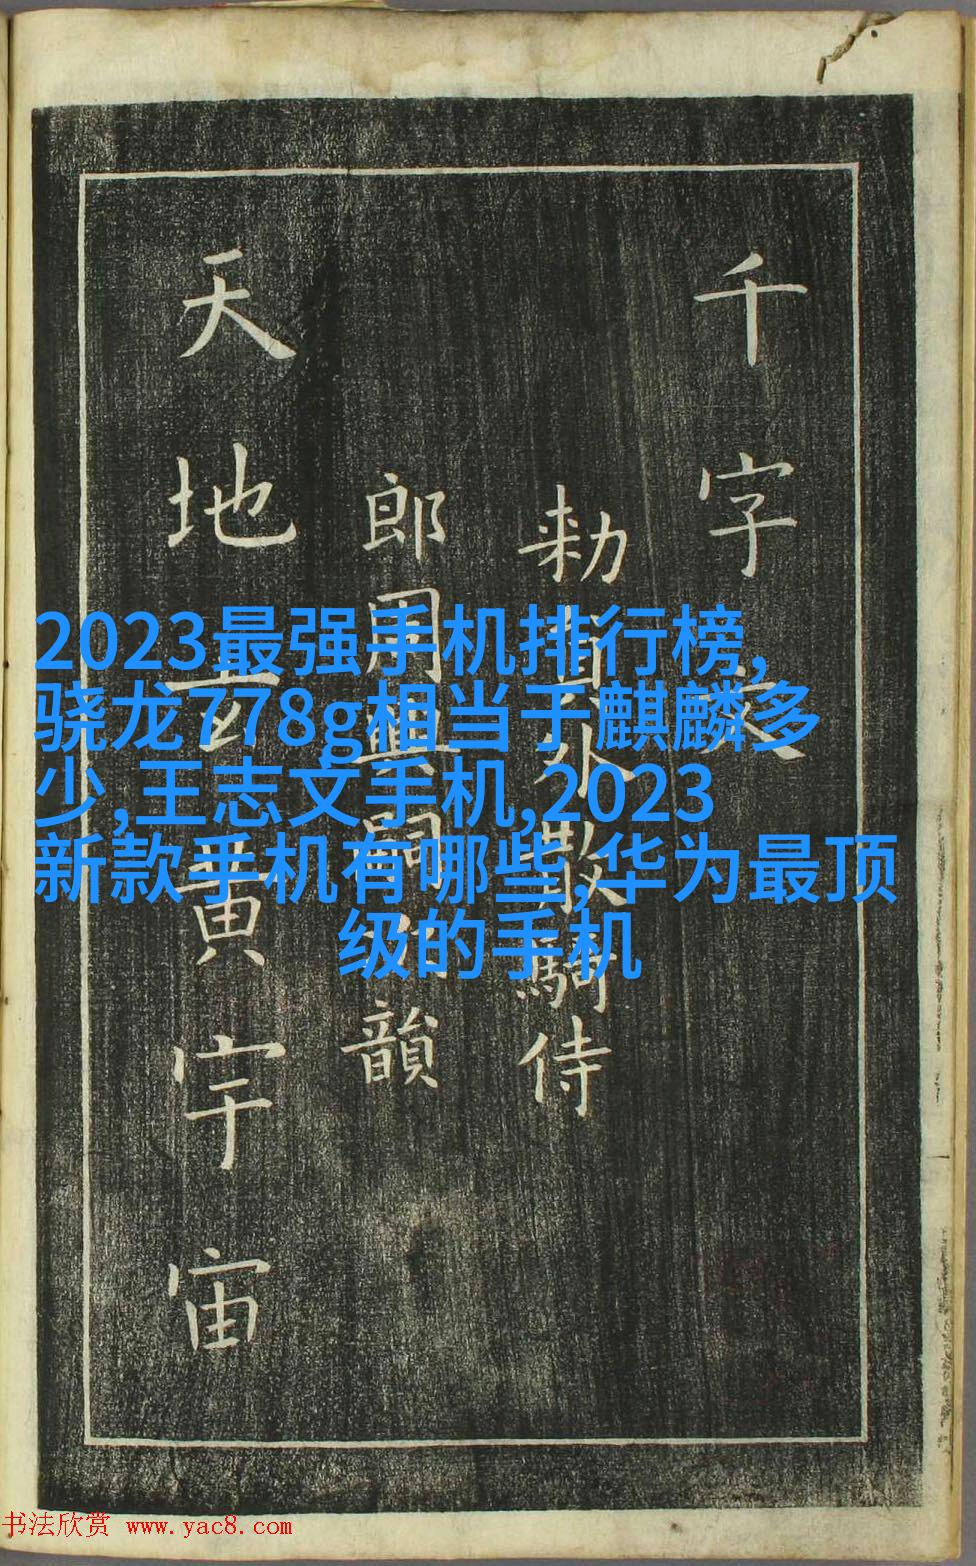 千字文
勑員外散騎侍
郎周興嗣次韻
天地玄黃宇宙
2023最强手机排行榜,
骁龙778g相当于麒麟多
少,王志文手机,2023
新款手机有哪些,华为最顶
级的手机
书法欣赏 www.yac8.com